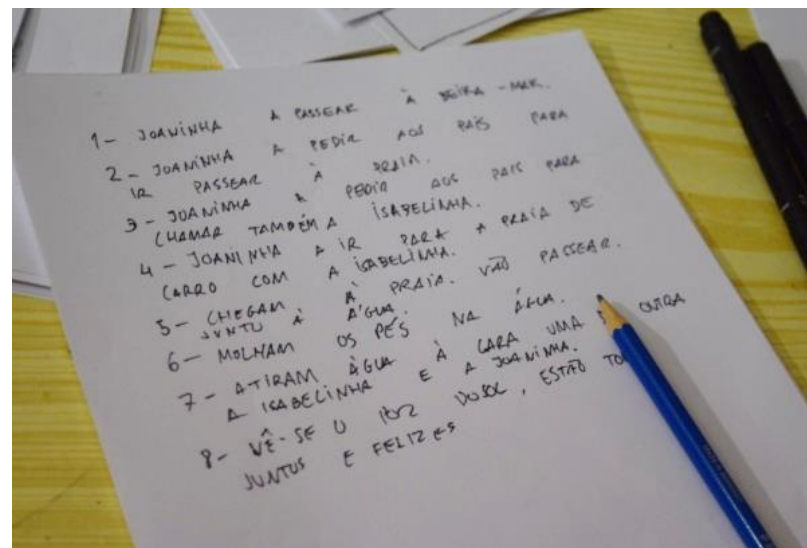 1- JOANINHA A PASSEAR À BEIRA-MAR.
2- JOANINHA A PEDIR AOS PAIS PARA
IR PASSEAR À PRAIA.
3- JOANINHA A PEDIR AOS PAIS PARA
CHAMAR TAMBÉM A ISABELINHA.
4- JOANINHA A IR PARA A PRAIA DE
CARRO COM A ISABELINHA.
5- CHEGAM À PRAIA. VÃO PASSEAR.
JUNTO À ÁGUA.
6- MOLHAM OS PÉS NA ÁGUA.
7- ATIRAM ÁGUA À CARA UMA OUTRA
A ISABELINHA E A JOANINHA.
8- VÊ-SE O PÔR DO SOL, ESTÃO TO
JUNTOS E FELIZES